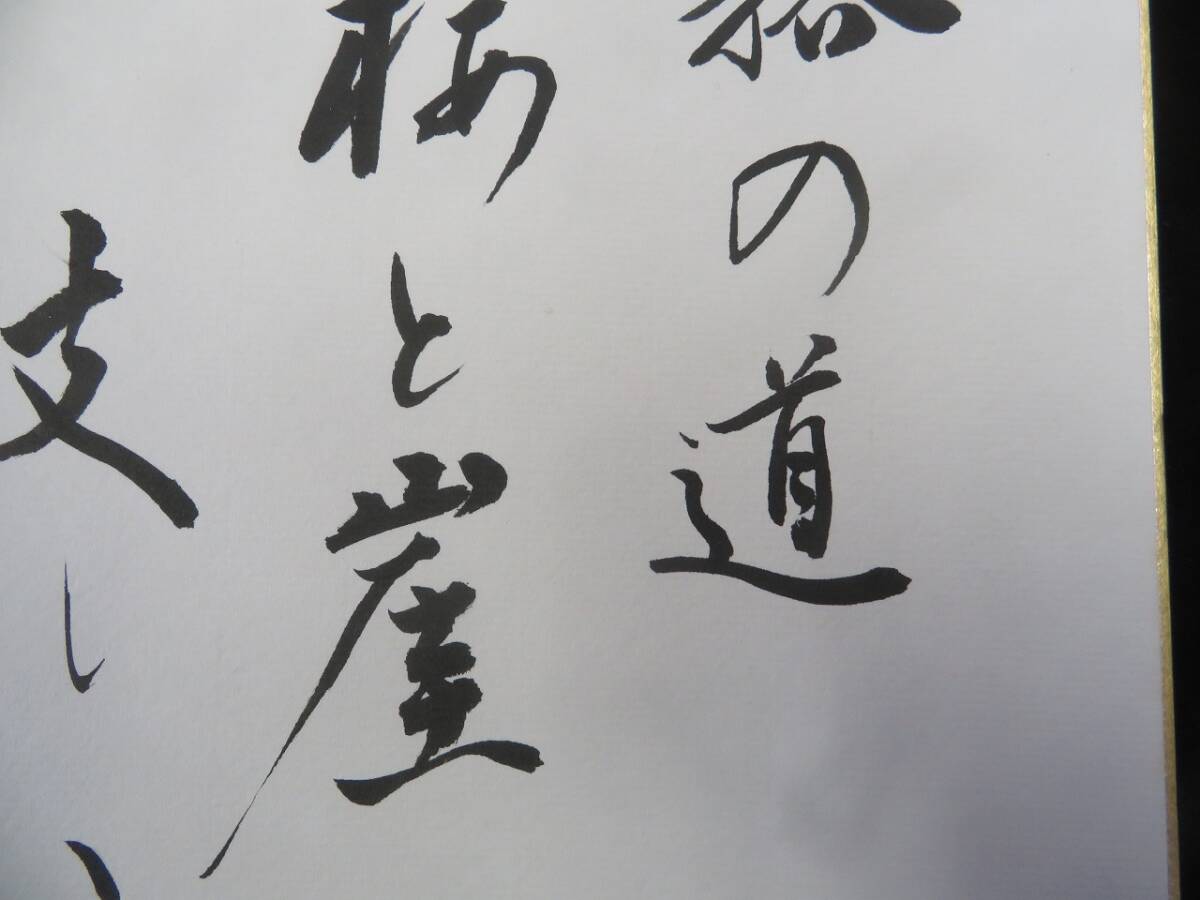 の道
桜と崖
支し